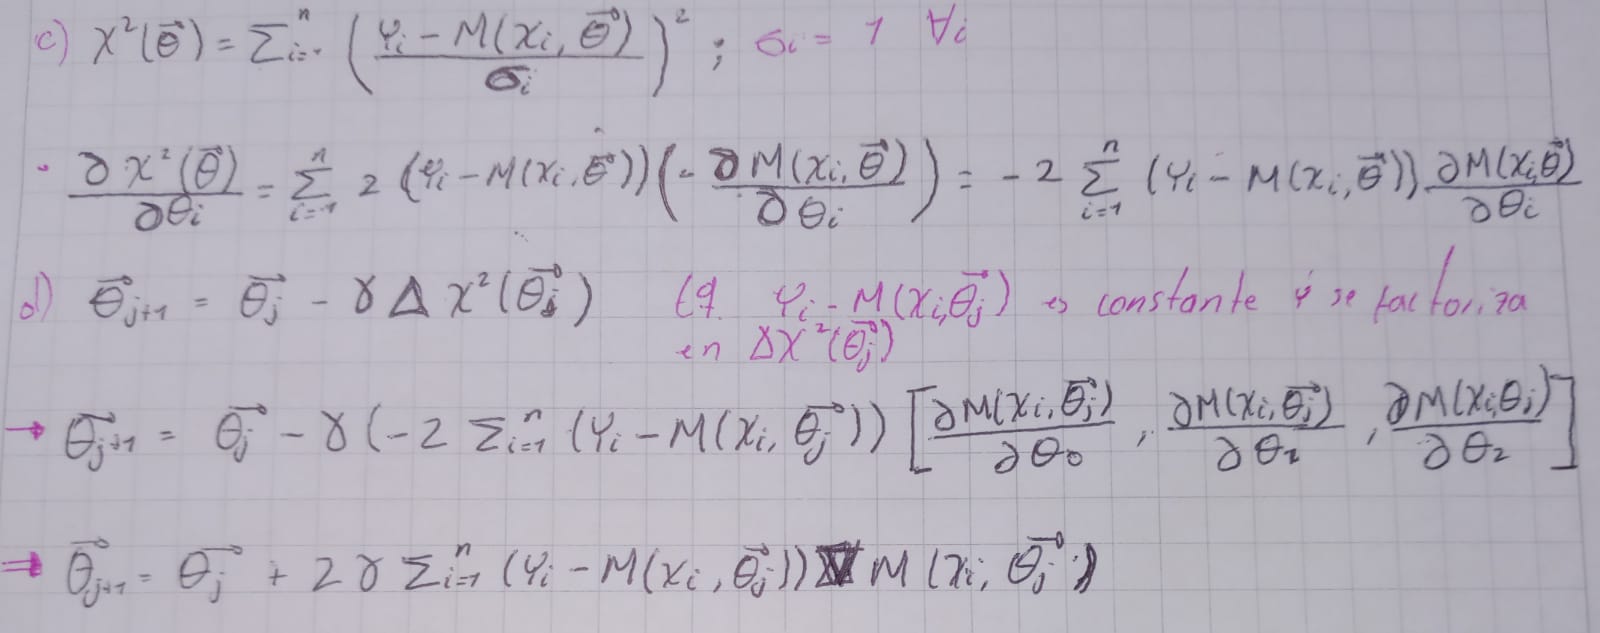 c) χ²(θ⃗) = Σᵢ₌₁ⁿ ( (yᵢ - M(xᵢ, θ⃗)) / σᵢ )² ; σᵢ = 1 ∀ᵢ
· ∂χ²(θ⃗)/∂θᵢ = Σᵢ₌₁ⁿ 2 (yᵢ - M(xᵢ, θ⃗)) (- ∂M(xᵢ, θ⃗)/∂θᵢ) = -2 Σᵢ₌₁ⁿ (yᵢ - M(xᵢ, θ⃗)) ∂M(xᵢ, θ⃗)/∂θᵢ
d) θ⃗ⱼ₊₁ = θ⃗ⱼ - γ Δ χ²(θ⃗ⱼ) yᵢ - M(xᵢ, θ⃗ⱼ) es constante y se factoriza
en Δχ²(θ⃗ⱼ)
→ θ⃗ⱼ₊₁ = θ⃗ⱼ - γ (-2 Σᵢ₌₁ⁿ (yᵢ - M(xᵢ, θ⃗ⱼ)) [ ∂M(xᵢ, θ⃗ⱼ)/∂θ₀ , ∂M(xᵢ, θ⃗ⱼ)/∂θ₁ , ∂M(xᵢ, θⱼ)/∂θ₂ ]
⇒ θ⃗ⱼ₊₁ = θ⃗ⱼ + 2γ Σᵢ₌₁ⁿ (yᵢ - M(xᵢ, θ⃗ⱼ)) ∇ M (xᵢ, θ⃗ⱼ)